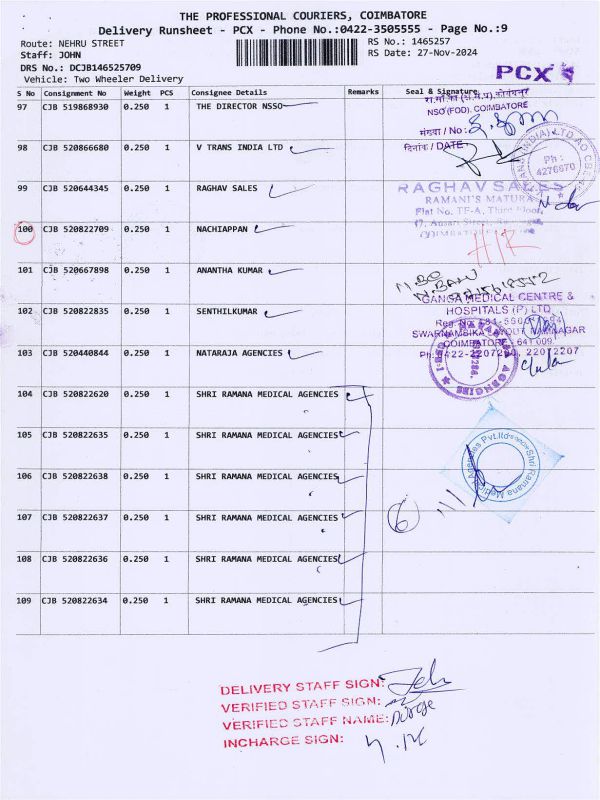 THE PROFESSIONAL COURIERS, COIMBATORE
Delivery Runsheet - PCX - Phone No.:0422-3505555 - Page No.:9
Route: NEHRU STREET RS No.: 1465257
Staff: JOHN RS Date: 27-Nov-2024
DRS No.: DCJB146525709
Vehicle: Two Wheeler Delivery
PCX
S No Consignment No Weight PCS Consignee Details Remarks Seal & Signature
97 CJB 519868930 0.250 1 THE DIRECTOR NSSO
NSO (FOD), COIMBATORE
संख्या / No :
दिनांक / DATE
98 CJB 520866680 0.250 1 V TRANS INDIA LTD
Ph :
4276670
99 CJB 520644345 0.250 1 RAGHAV SALES
RAGHAV SALES
RAMANI'S MATURA
Flat No. TF-A, Third Floor,
100 CJB 520822709 0.250 1 NACHIAPPAN
101 CJB 520667898 0.250 1 ANANTHA KUMAR
GANGA MEDICAL CENTRE &
HOSPITALS (P) LTD
102 CJB 520822835 0.250 1 SENTHILKUMAR
COIMBATORE - 641 009.
103 CJB 520440844 0.250 1 NATARAJA AGENCIES
104 CJB 520822620 0.250 1 SHRI RAMANA MEDICAL AGENCIES
105 CJB 520822635 0.250 1 SHRI RAMANA MEDICAL AGENCIES
Shri Ramana Medical Agencies Pvt.Ltd
106 CJB 520822638 0.250 1 SHRI RAMANA MEDICAL AGENCIES
107 CJB 520822637 0.250 1 SHRI RAMANA MEDICAL AGENCIES
6
108 CJB 520822636 0.250 1 SHRI RAMANA MEDICAL AGENCIES
109 CJB 520822634 0.250 1 SHRI RAMANA MEDICAL AGENCIES
DELIVERY STAFF SIGN:
VERIFIED STAFF SIGN:
VERIFIED STAFF NAME:
INCHARGE SIGN: